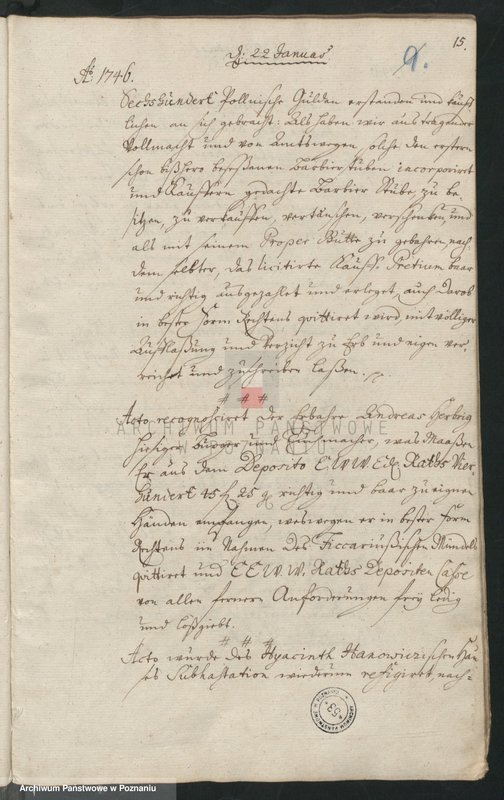 15.
d. 22 Januar
9.
Aō 1746.
Sechshundert Pollnische Gülden erstanden und käuff
lichen an sich gebracht: Als haben wir aus tragender
Vollmacht und von Amtswegen, solche den erstern
schon bißhero beseßenen Barbierstuben incorporiret
und Kauffern gedachte Barbier Stube, zu be
sitzen, zu verkauffen, vertauschen, verschenken, und
als mit seinem Proper Gutte zu gebahren, nach
dem selbter, das licitirte Kauff Pretium baar
und richtig ausgezahlet und erleget, auch darob
in bester Form Rechtens quittiret wird, mit völliger
Aufflaßung und Verzicht zu Erb und eigen ver
reichet und zuschreiben laßen.
# # #
ARCHIWUM PAŃSTWOWE
W POZNANIU
Acto recognosciret der Erbahre Andreas Herbrig
hiesiger Bürger und Tuchmacher, was Maaßen
Er aus dem Deposito E. W. W. Raths Vier-
hundert 45 f 25 g richtig und baar zu eignen
Händen empfangen, weswegen er in bester Form
Rechtens im Nahmen des Ficcariußischen Mündels
quittiret und E E W. W. Raths Depositen Casse
von allen fernern Anforderungen frey ledig
und loßgiebt.
# # #
Acto wurde des Hyacinth Hanowiczischen Hau
ses Subhastation wiederum refigiret, nach-
Archiwum Państwowe w Poznaniu